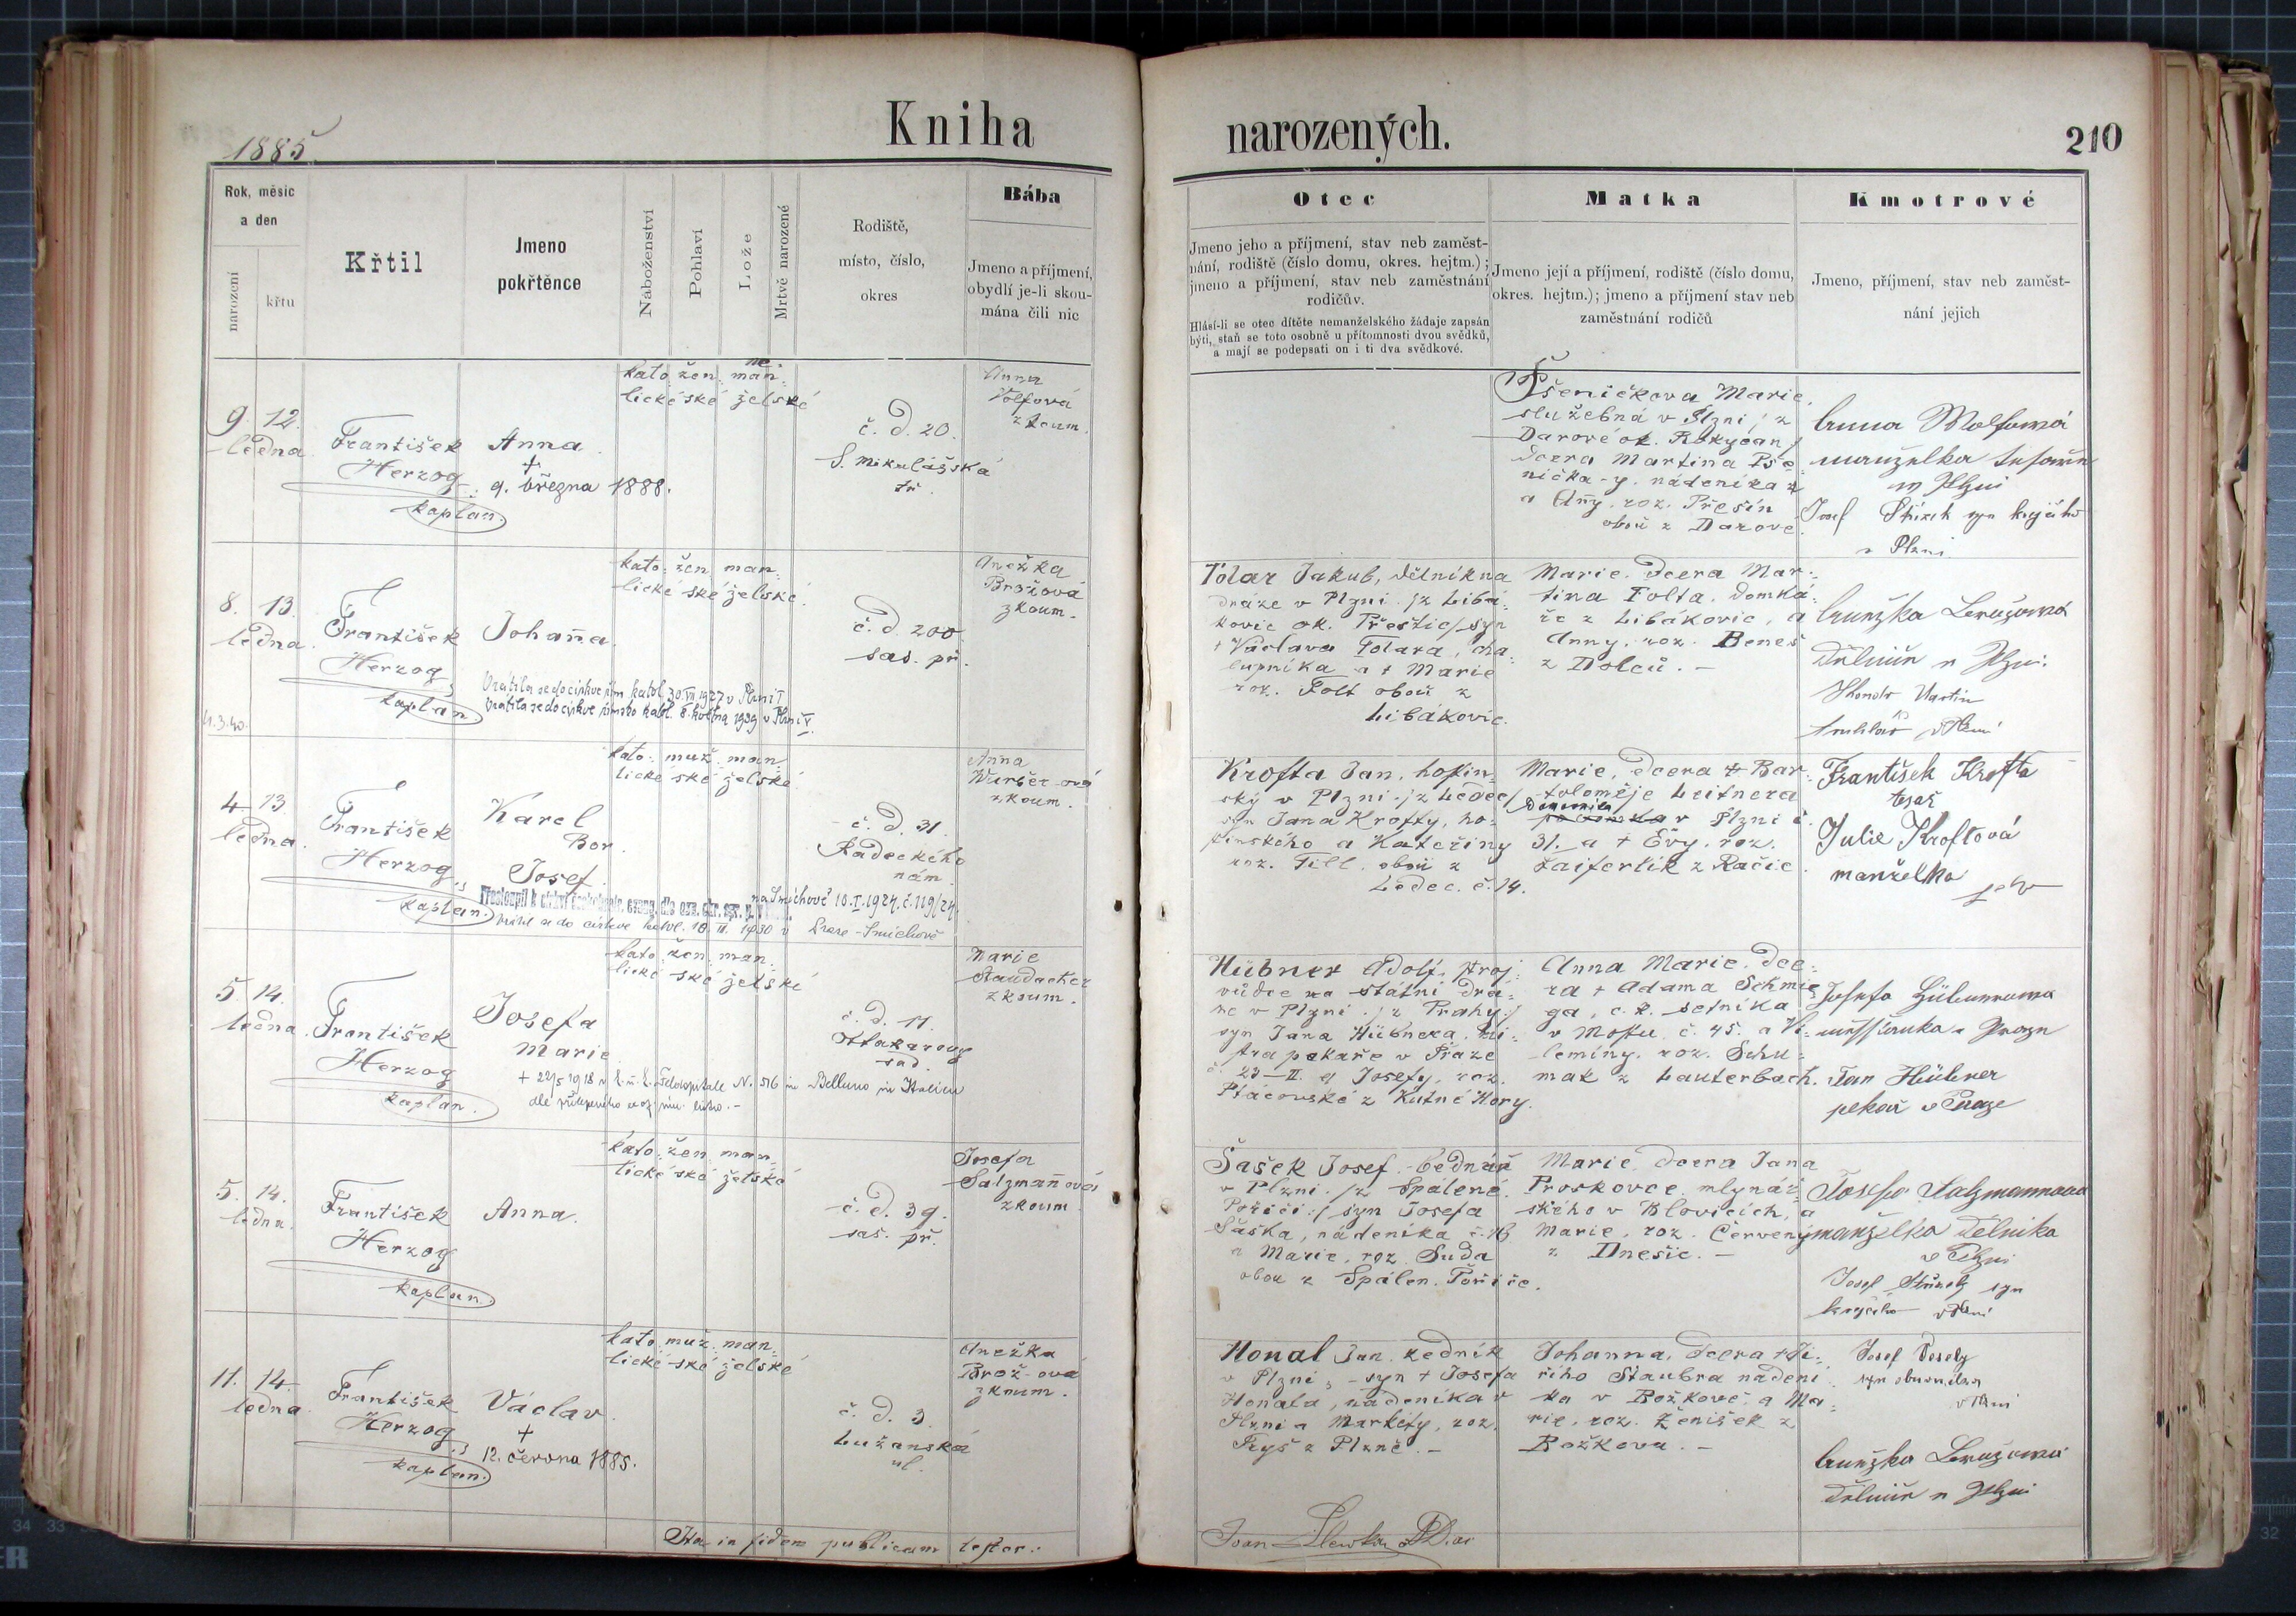 1885
Kniha narozených.
210
Rok, měsíc
a den
narození
křtu
Křtil
Jmeno
pokřtěnce
Náboženství
Pohlaví
Lože
Mrtvě narozené
Rodiště,
místo, číslo,
okres
Bába
Jmeno a příjmení,
obydlí je-li skou-
mána čili nic
Otec
Jmeno jeho a příjmení, stav neb zaměst-
nání, rodiště (číslo domu, okres. hejtm.);
jmeno a příjmení, stav neb zaměstnání
rodičův.
Hlásí-li se otec dítěte nemanželského žádaje zapsán
býti, staň se toto osobně u přítomnosti dvou svědků,
a mají se podepsati on i ti dva svědkové.
Matka
Jmeno její a příjmení, rodiště (číslo domu,
okres. hejtm.); jmeno a příjmení stav neb
zaměstnání rodičů
Kmotrové
Jmeno, příjmení, stav neb zaměst-
nání jejich
9. 12.
ledna
František
Herzog
kaplan.
Anna
+
9. března 1888.
kato: žen: man:
ne
lické ské želské
č. d. 20.
S. Mikulášská
tř.
Anna
Volfová
zkoum.
Pšeničkova Marie,
služebná v Plzni, z
Darové ok. Rokycan
dcera Martina Pše-
nička-y, nádeníka z
a Any, roz. Přešín
obou z Darové.
Anna Wolfowá
manželka
w Plzni
Josef syn krejčího
v Plzni
8. 13.
ledna.
František
Herzog,
kaplan
4.3.40.
Johana.
Vrátila se do církve řím. katol. 30. VI 1927 v Plzni I
Vrátila se do církve římsko katol. 8. května 1939 v Plzni V.
kato: žen: man:
lické ské želské.
č. d. 200
sas. př.
Anežka
Brožová
zkoum.
Tolar Jakub, dělník na
dráze v Plzni /z Libá-
kovic ok. Přeštic/ syn
+ Václava Tolara, cha-
lupníka a + Marie
roz. Folt obou z
Libákovic.
Marie, dcera Mar-
tina Folta, domká-
ře z Libákovic, a
Anny, roz. Beneš
z Dolců. -
Martin
truhlář v Plzni
4. 13.
ledna.
František
Herzog,
kaplan.
Karel
Bor.
Josef.
na Smíchově 10. I. 1924. č. 119/24.
kato: muž: man:
lické ské želské
č. d. 31.
Radeckého
nám.
Anna
zkoum.
Krofta Jan, hostin-
ský v Plzni /z Ledec/
syn Jana Krofty, ho-
stinského a Kateřiny
roz. Till, obou z
Ledec. č. 14.
Marie, dcera + Bar-
toloměje Leitnera
v Plzni č.
31. a + Évy, roz.
Zaifertik z Račic.
František Krofta
tesař
Julie Kroftová
manželka
jeho
5. 14.
ledna.
František
Herzog
kaplan.
Josefa
Marie
+ 22/5 1918 v k. u. k. Feldspitale Nr. 516 in Belluno in Italien
kato: žen: man:
lické ské želské
č. d. 11.
Ottakarovy
sad.
Marie
Staudacher
zkoum.
Hübner Adolf, stroj-
vůdce na státní drá-
ze v Plzni /z Prahy/
syn Jana Hübnera, mi-
stra pekaře v Praze
č. 23-II. a Josefy, roz.
Ptáčovské z Kutné Hory.
Anna Marie, dce-
ra + Adama Schmie-
ga, c. k. setníka
v Mostu č. 45. a Vi-
lemíny, roz. Schu-
mak z Lauterbach.
Josefa Hübnerowa
Jan Hübner
pekař v Praze
5. 14.
ledna.
František
Herzog
kaplan.
Anna.
kato: žen: man:
lické ské želské
č. d. 39.
sas. př.
Josefa
Salzmanová
zkoum
Šašek Josef, bednář
v Plzni /z Spálené
Poříčí/ syn Josefa
Šaška, nádeníka č. 16
a Marie, roz. Suda
obou z Spálen. Poříče.
Marie, dcera Jana
Proskovce, mlynář-
ského v Blovicích, a
Marie, roz. Červený
z Dnešic. -
Josefa Salzmannova
manželka dělníka
v Plzni
Josef syn
krejčího v Plzni
11. 14.
ledna.
František
Herzog,
kaplan.
Václav.
+
12. června 1885.
kato: muž: man:
lické ské želské
č. d. 3.
Lužanská
ul.
Anežka
Brož-ová
zkoum.
Honal Jan, zedník
v Plzni, - syn + Josefa
Honala, nádeníka v
Plzni a Markéty, roz.
Fryš z Plzně. -
Johanna, dcera + Ji-
řího Staubra nádení-
ka v Božkově a Ma-
rie, roz. Ženíšek z
Božkova. -
Josef Veselý
syn obuvníka
v Plzni
Ita in fidem publicam testor: